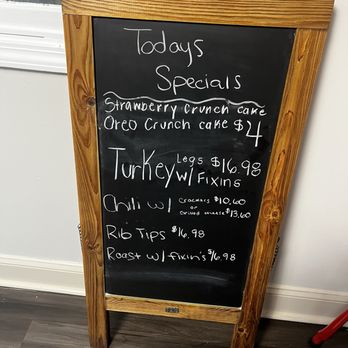 Todays
Specials
Strawberry Crunch cake
Oreo Crunch cake $4
Turkey Legs $16.98
w/ Fixins
Chili w/ Crackers $10.60
or
Grilled cheese $13.60
Rib Tips $16.98
Roast w/ fixin's $16.98